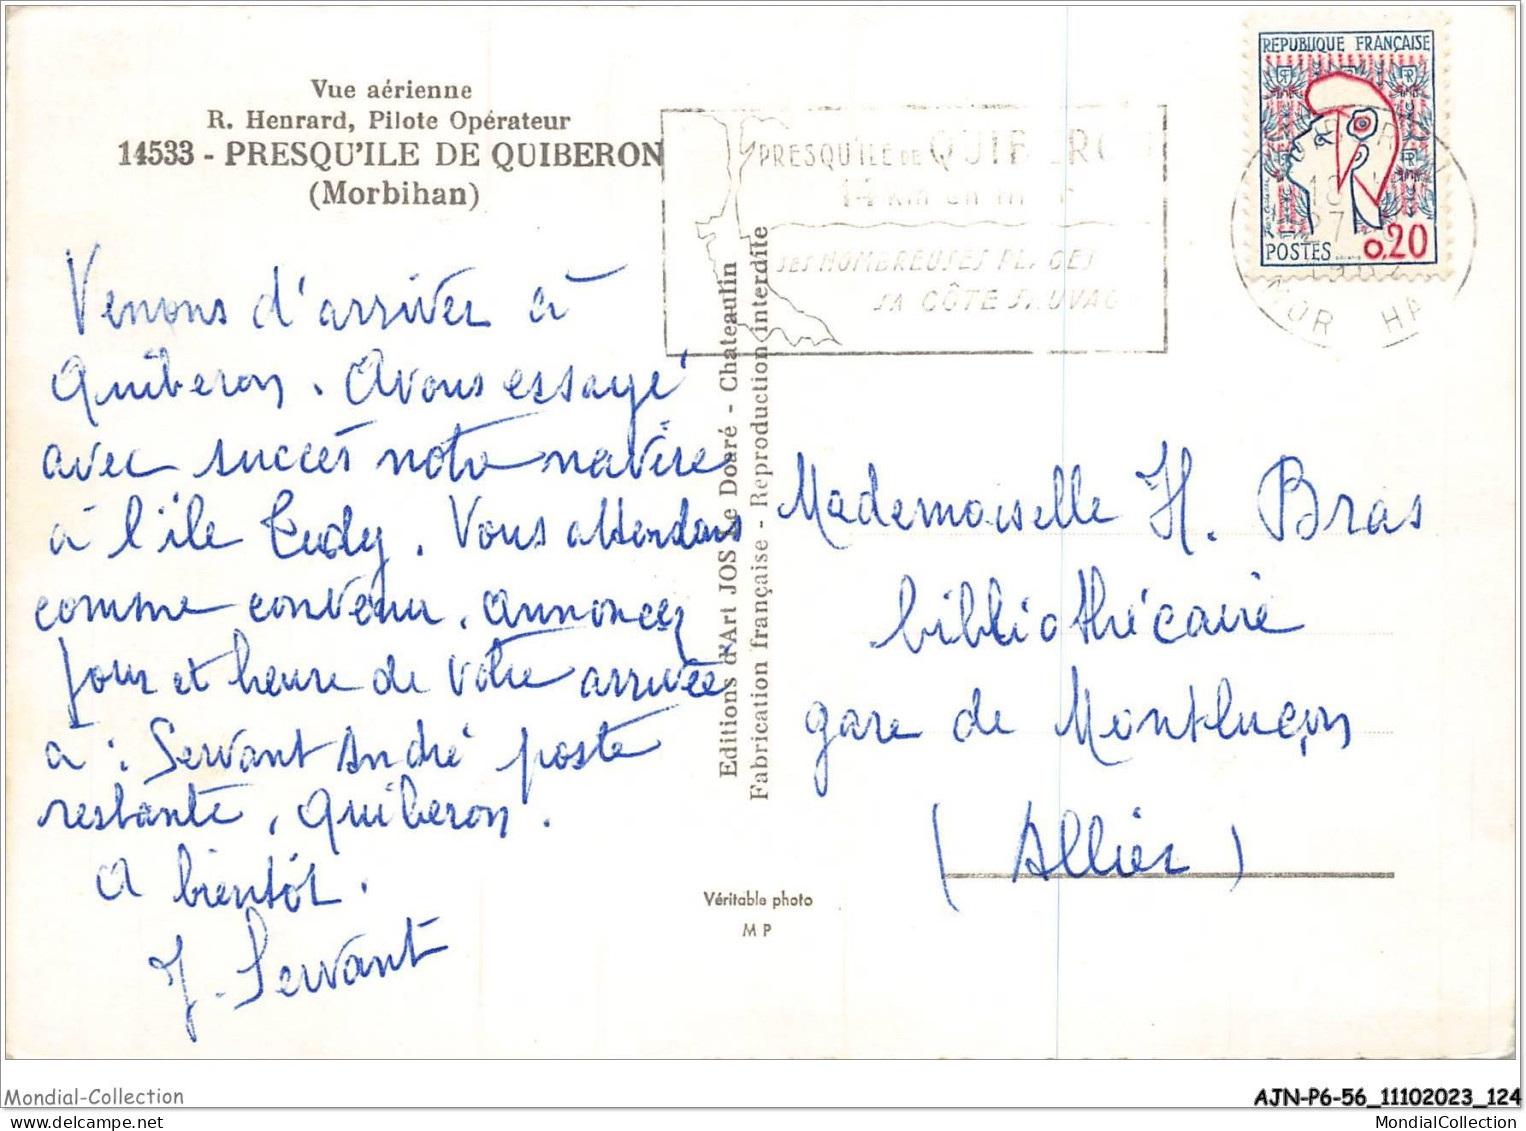 Vue aérienne
R. Henrard, Pilote Opérateur
14533 - PRESQU'ILE DE QUIBERON
(Morbihan)
PRESQU'ILE DE QUIBERON
14 km en mer
SES NOMBREUSES PLAGES
SA CÔTE SAUVAGE
REPUBLIQUE FRANÇAISE
POSTES 0,20
Venons d'arriver à
Quiberon. Avons essayé
avec succès notre navire
à l'île Tudy. Vous attendons
comme convenu. Annoncez
jour et heure de votre arrivée
à : Servant André poste
restante, Quiberon.
A bientôt.
J. Servant
Editions d'Art JOS Le Doaré - Chateaulin
Fabrication française - Reproduction interdite
Mademoiselle H. Bras
bibliothécaire
gare de Montluçon
(Allier)
Véritable photo
M P
Mondial-Collection
AJN-P6-56_11102023_124
MondialCollection